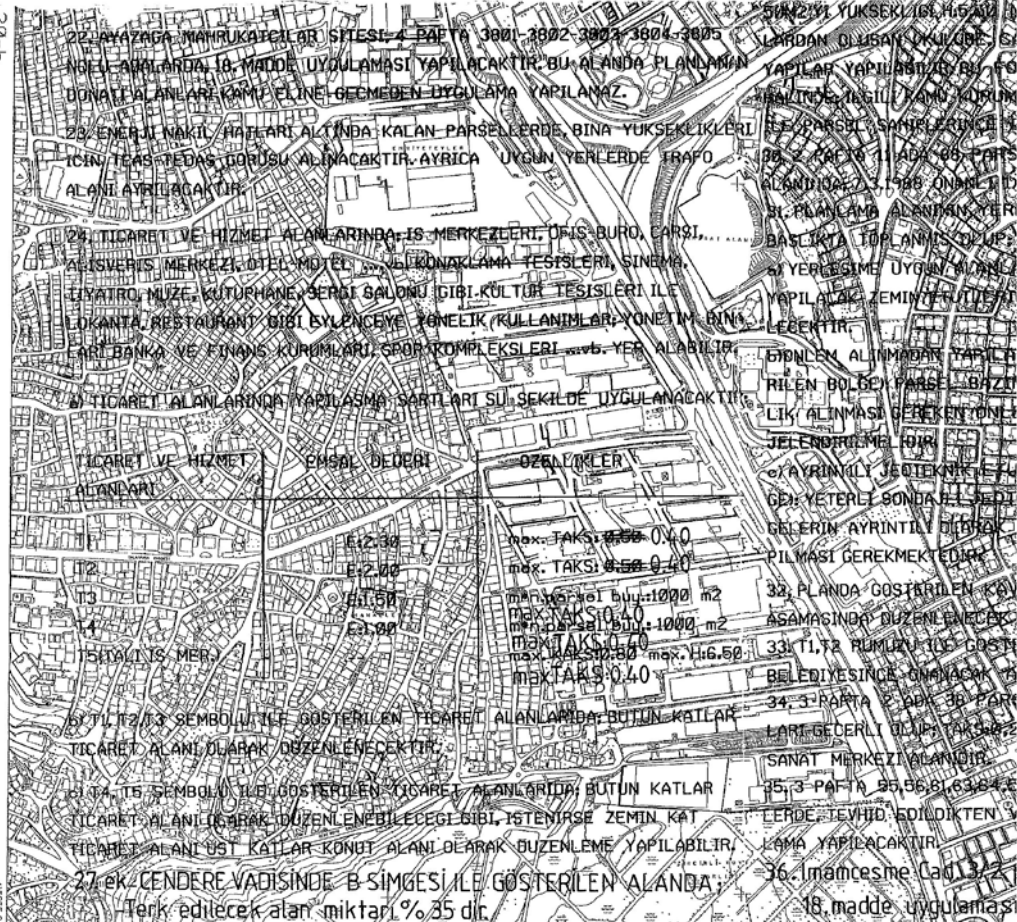 22. AYAZAGA MAHRUKATCILAR SITESI 4 PAFTA 3801-3802-3803-3804-3805
NOLU ADALARDA, 18. MADDE UYGULAMASI YAPILACAKTIR. BU ALANDA PLANLANAN
DONATI ALANLARI KAMU ELINE GECMEDEN UYGULAMA YAPILAMAZ.
23. ENERJI NAKIL HATLARI ALTINDA KALAN PARSELLERDE, BINA YUKSEKLIKLERI
ICIN TEAS-TEDAS GORUSU ALINACAKTIR. AYRICA UYGUN YERLERDE TRAFO
ALANI AYRILACAKTIR.
24. TICARET VE HIZMET ALANLARINDA: IS MERKEZLERI, OFIS-BURO, CARSI,
ALISVERIS MERKEZI, OTEL-MOTEL ...vb. KONAKLAMA TESISLERI, SINEMA,
TIYATRO, MUZE, KUTUPHANE, SERGI SALONU GIBI KULTUR TESISLERI ILE
LOKANTA, RESTAURANT GIBI EYLENCEYE YONELIK KULLANIMLAR; YONETIM BINA
LARI BANKA VE FINANS KURUMLARI, SPOR KOMPLEKSLERI ...vb. YER ALABILIR.
a) TICARET ALANLARINDA YAPILASMA SARTLARI SU SEKILDE UYGULANACAKTIR:
TICARET VE HIZMET ALANLARI EMSAL DEGERI OZELLIKLER
T1 E:2.30 max. TAKS: 0.50 0.40
T2 E:2.00 max. TAKS: 0.50 0.40
T3 E:1.50 min.parsel buy.:1000 m2
max TAKS:0.40
T4 E:1.00 min.parsel buy.:1000 m2
max TAKS:0.40
T5(TALI IS MER.) max.H:6.50
max TAKS:0.40
b) T1, T2, T3 SEMBOLU ILE GOSTERILEN TICARET ALANLARIDA; BUTUN KATLAR
TICARET ALANI OLARAK DUZENLENECEKTIR.
c) T4, T5 SEMBOLU ILE GOSTERILEN TICARET ALANLARIDA; BUTUN KATLAR
TICARET ALANI OLARAK DUZENLENEBILECEGI GIBI, ISTENIRSE ZEMIN KAT
TICARET ALANI UST KATLAR KONUT ALANI OLARAK DUZENLEME YAPILABILIR.
27. ek-CENDERE VADISINDE B SIMGESI ILE GÖSTERILEN ALANDA;
-Terk edilecek alan miktarı % 35 dir.
YUKSEKLIGI
LARDAN OLUSAN
YAPILAR YAPILABILIR. BU
HALINDE ILGILI KAMU KURUM
ILE PARSEL SAHIPLERINCE
30. 2 PAFTA 11 ADA 68 PARS
ALANINDA; 7.3.1988 ONANLI
31. PLANLAMA ALANININ YER
BASLIKTA TOPLANMIS OLUP;
a) YERLESIME UYGUN ALANLA
YAPILACAK ZEMIN ETUTLERI
LECEKTIR.
b) ONLEM ALINMADAN YAPILA
RILEN BOLGE) PARSEL BAZIN
LIK ALINMASI GEREKEN ONLE
JELENDIRILMELIDIR.
c) AYRINTILI JEOTEKNIK
GE): YETERLI SONDAJ
GELERIN AYRINTILI OLARAK
PILMASI GEREKMEKTEDIR.
32. PLANDA GOSTERILEN KAV
ASAMASINDA DUZENLENECEK
33. T1,T2 RUMUZU ILE GOSTE
BELEDIYESINCE ONANACAK A
34. 3 PAFTA 2 ADA 38 PARS
LARI GECERLI OLUP;
SANAT MERKEZI ALANIDIR.
35. 3 PAFTA 55,56,61,63,64,
LERDE, TEVHID EDILDIKTEN
LAMA YAPILACAKTIR.
36. Imamcesme Cad. 3/2
18. madde uygulamas